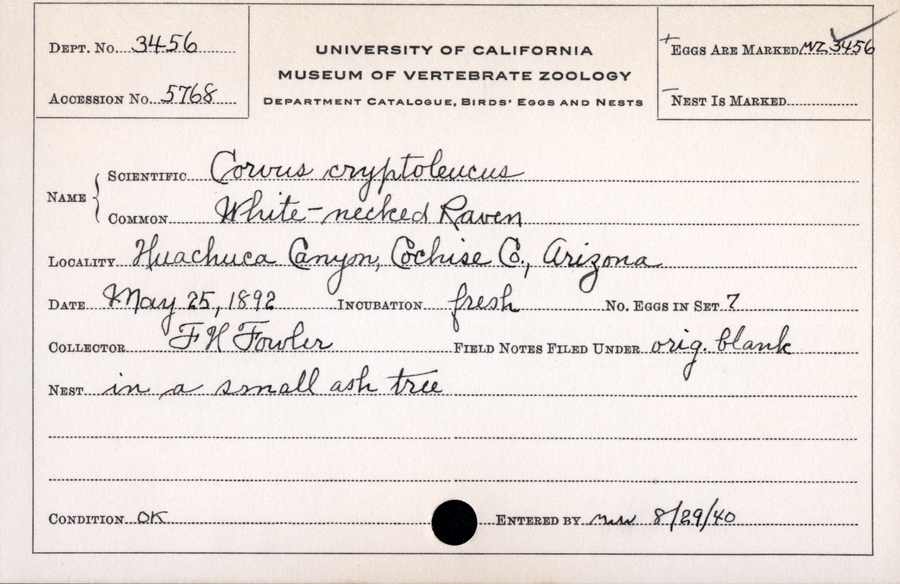 Dept. No. 3456
Accession No. 5768
UNIVERSITY OF CALIFORNIA
MUSEUM OF VERTEBRATE ZOOLOGY
Department Catalogue, Birds' Eggs and Nests
+ Eggs Are Marked MVZ 3456
- Nest Is Marked
Name { Scientific Corvus cryptoleucus
Common White-necked Raven
Locality Huachuca Canyon, Cochise Co., Arizona
Date May 25, 1892 Incubation fresh No. Eggs in Set 7
Collector F H Fowler Field Notes Filed Under orig. blank
Nest in a small ash tree
Condition OK Entered by 8/29/40